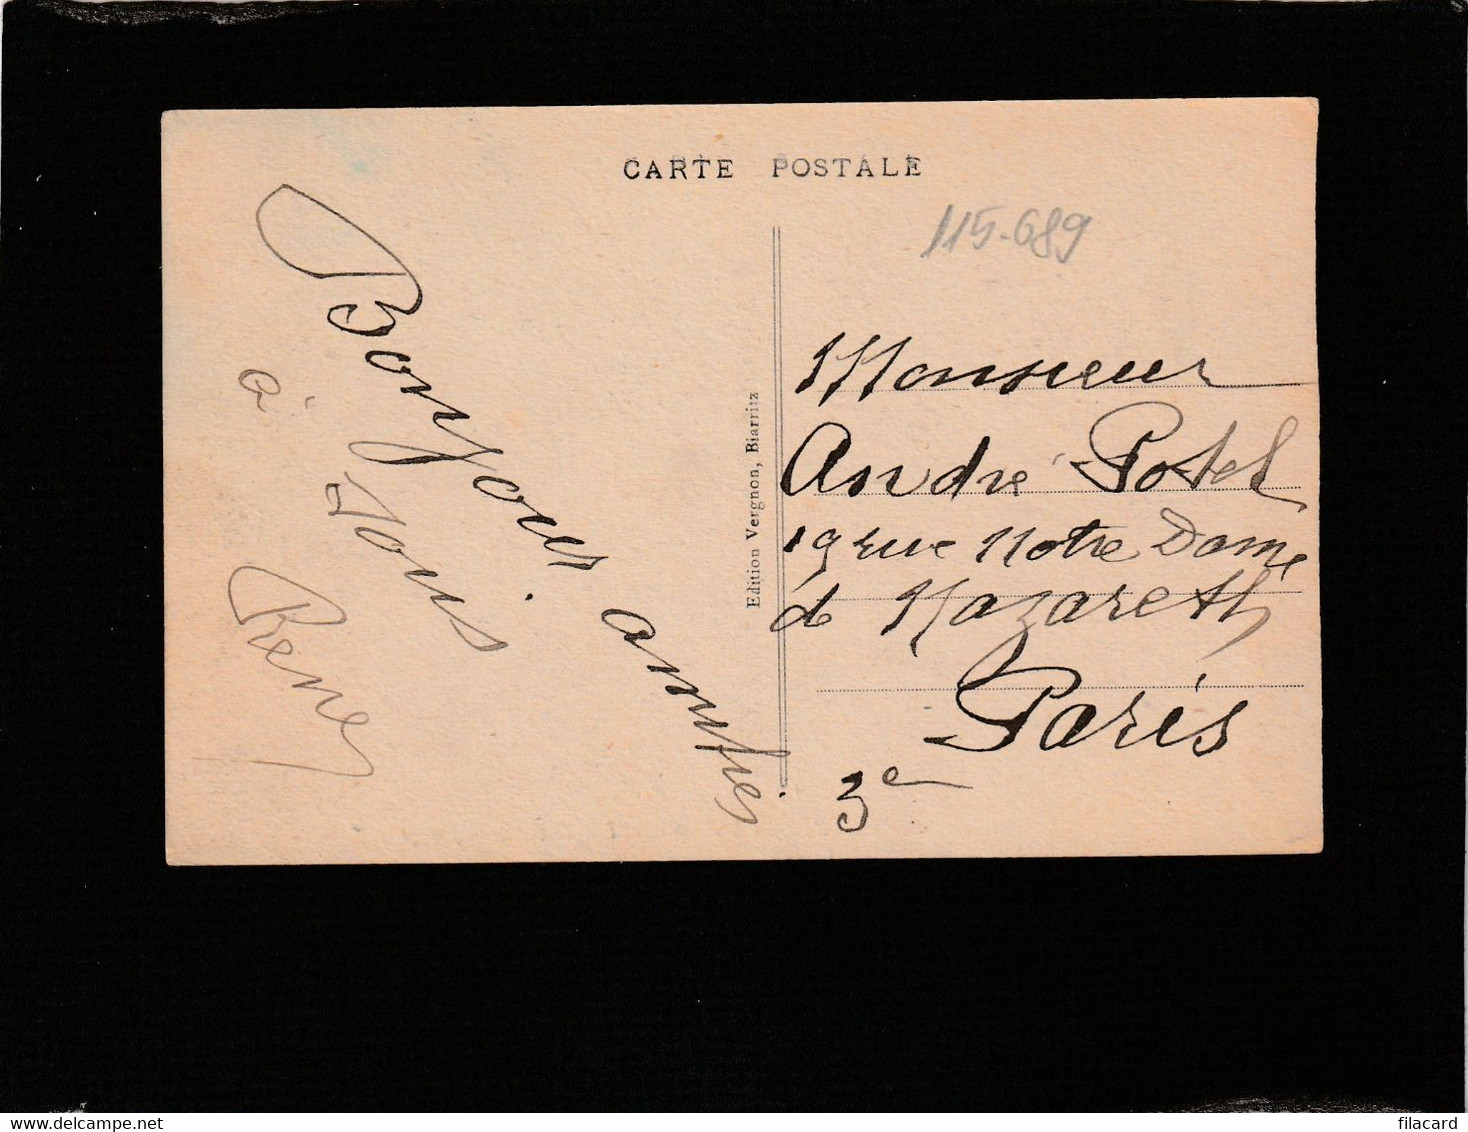 CARTE POSTALE
115-689
Bonjour amities
à Tous
René
Edition Vergnon, Biarritz
Monsieur
André Potel
19 rue Notre Dame
de Nazareth
Paris
3e
www.delcampe.net
filacard